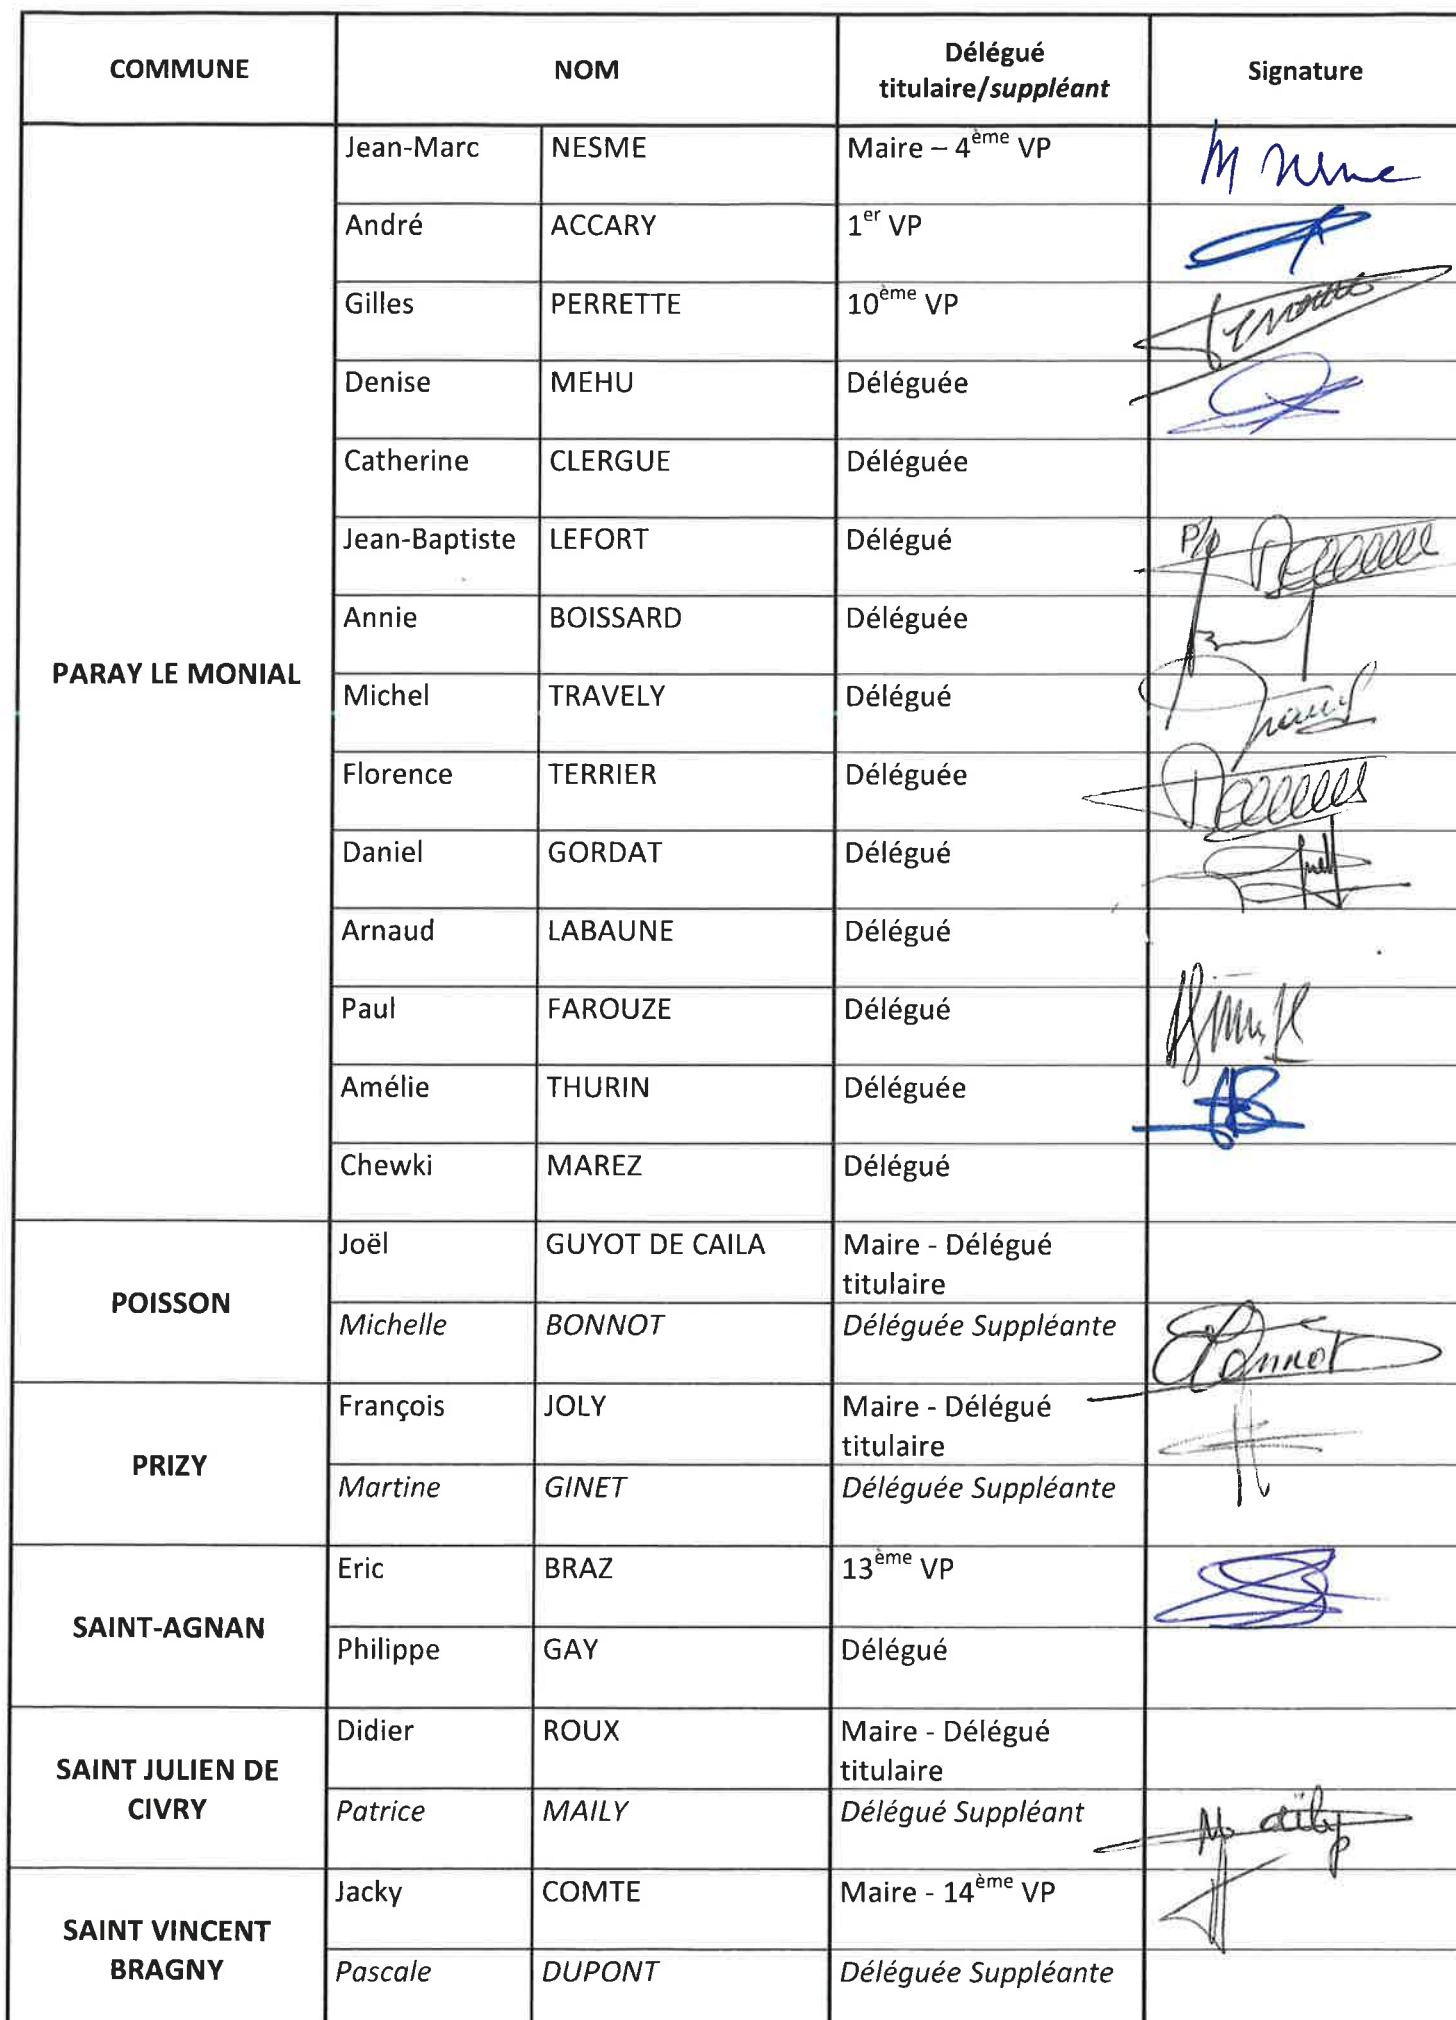 COMMUNE NOM Délégué titulaire/suppléant Signature
PARAY LE MONIAL
Jean-Marc NESME Maire – 4ème VP
André ACCARY 1er VP
Gilles PERRETTE 10ème VP
Denise MEHU Déléguée
Catherine CLERGUE Déléguée
Jean-Baptiste LEFORT Délégué P/o
Annie BOISSARD Déléguée
Michel TRAVELY Délégué
Florence TERRIER Déléguée
Daniel GORDAT Délégué
Arnaud LABAUNE Délégué
Paul FAROUZE Délégué
Amélie THURIN Déléguée
Chewki MAREZ Délégué
POISSON
Joël GUYOT DE CAILA Maire - Délégué titulaire
Michelle BONNOT Déléguée Suppléante
PRIZY
François JOLY Maire - Délégué titulaire
Martine GINET Déléguée Suppléante
SAINT-AGNAN
Eric BRAZ 13ème VP
Philippe GAY Délégué
SAINT JULIEN DE CIVRY
Didier ROUX Maire - Délégué titulaire
Patrice MAILY Délégué Suppléant
SAINT VINCENT BRAGNY
Jacky COMTE Maire - 14ème VP
Pascale DUPONT Déléguée Suppléante